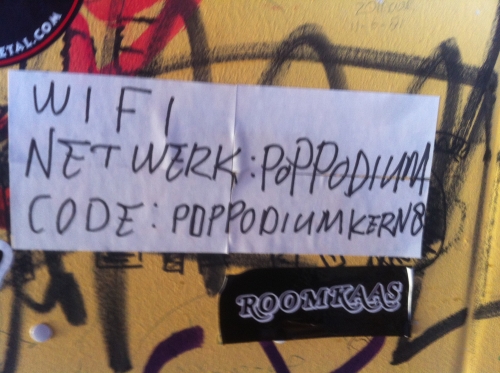 ETAL.COM
WIFI
NETWERK: POPPODIUM
CODE: POPPODIUMKERN8
ROOMKAAS